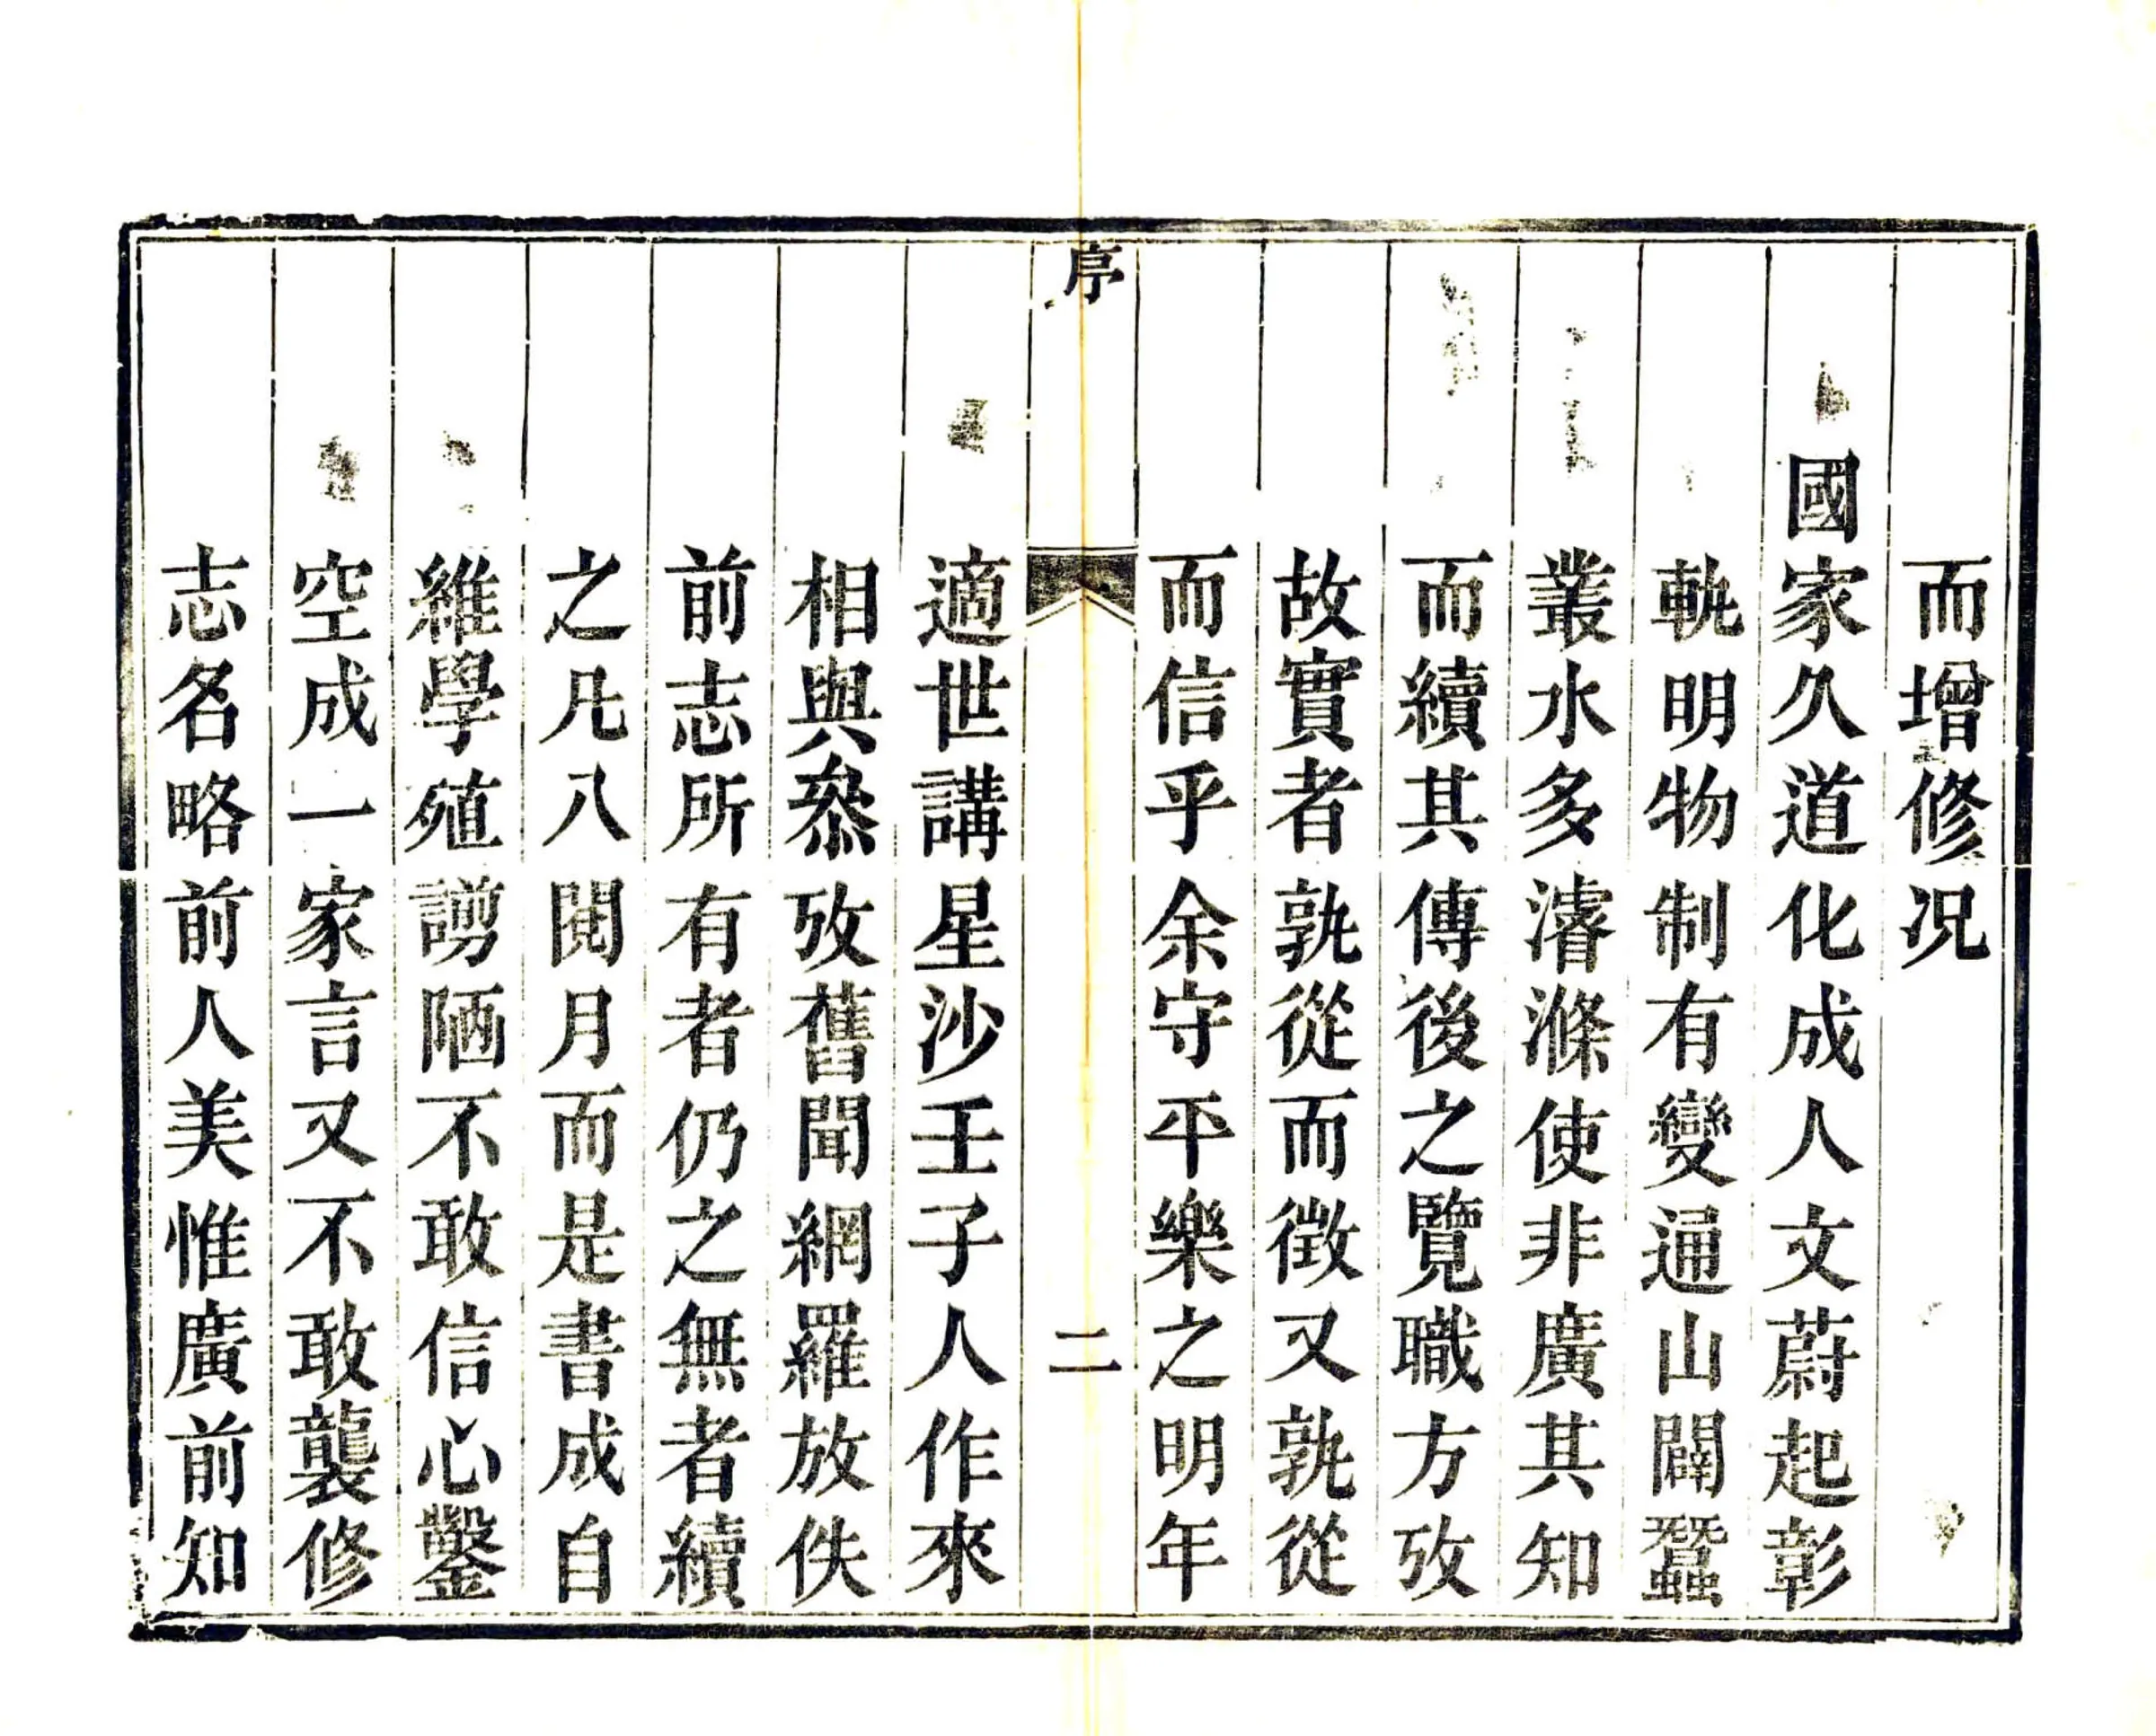 而增修况
國家久道化成人文蔚起彰
軌明物制有變通山闢蠶
叢水多濬滌使非廣其知
而續其傳後之覽職方攷
故實者孰從而徵又孰從
而信乎余守平樂之明年
序
二
適世講星沙壬子人作來
相與叅攷舊聞網羅放佚
前志所有者仍之無者續
之凡八閱月而是書成自
維學殖謭陋不敢信心鑿
空成一家言又不敢襲修
志名略前人美惟廣前知